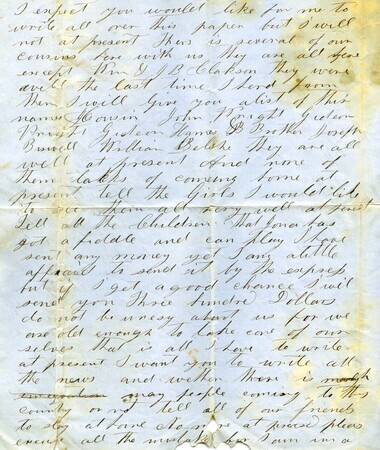 I expect you would like for me to
write all over this paper but I will
not at present Thers is several of our
cousins here with us they are all here
except Wm & J B Clakson they were
well the last time I herd from
them I will give you a list of this
names Cousin John Bright Gideon
Bright Gideon Hames & Brother Joseph
William they are all
well at present And none of
them talks of coming home at
present tell the Girls I would like
to see them all very well at
Tell all the Children that has
got a fiddle and can play I have
sent any money yet I am a little
affraid to send it by the express
but if I get a good chance I will
send you Three hundre Dollars
do not be unesy about us for we
are old enough to take care of our
selves that is all I have to write
at present I want you to write all
the news and wether there is
may people coming to this
country or not tell all of our friends
to stay at home no more at present pleas
excuse all the mistaks for I am in a